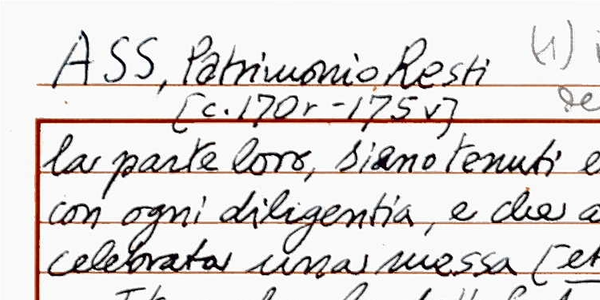 ASS, Patrimonio Resti (1)
[c. 170r - 175v] de
la parte loro, siano tenuti e
con ogni diligentia, e che a
celebrata una messa [et